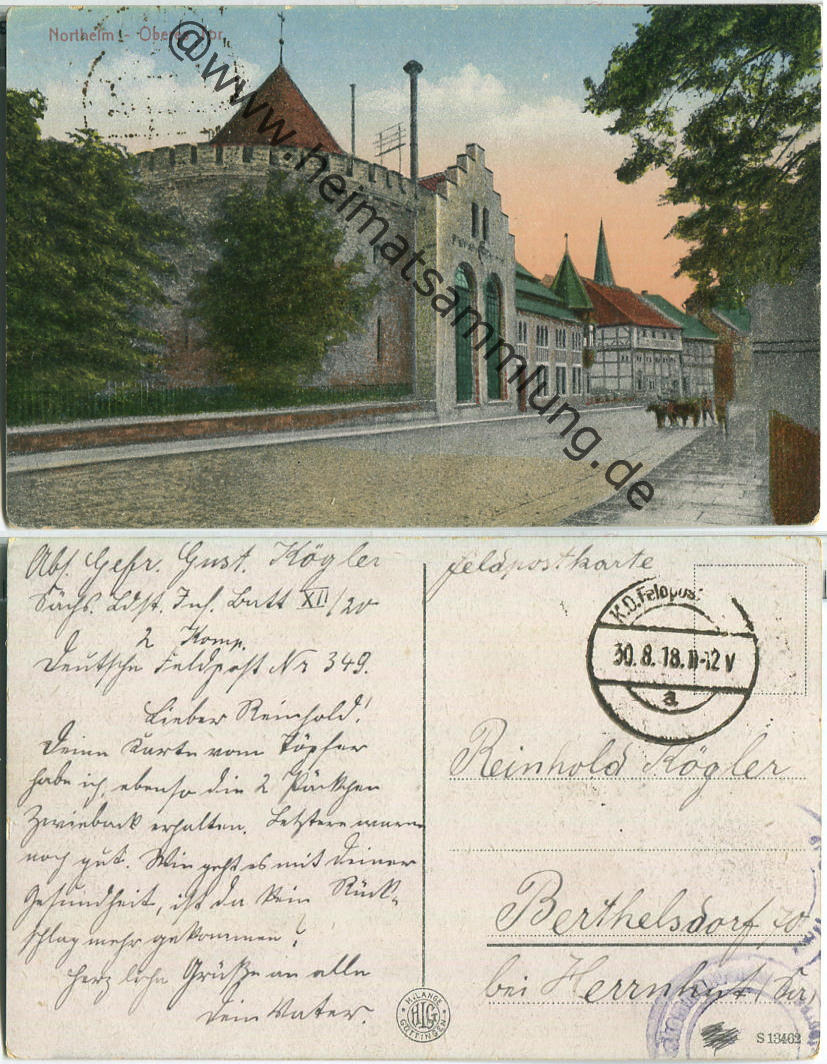 Northeim - Oberes Tor
@www.heimatsammlung.de
Abs. Gefr. Gust. Kögler
Sächs. Ldst. Inf. Batt XII/20
2 Komp.
Deutsche Feldpost Nr 349.
Lieber Reinhold!
Deine Karte vom Töpfer
habe ich, ebenso die 2 Päckchen
Zwieback erhalten. Letztere waren
noch gut. Wie geht es mit Deiner
Gesundheit, ist da kein Rück-
schlag mehr gekommen?
Herzliche Grüße an alle
Dein Vater.
Feldpostkarte
K.D. Feldpost
30.8.18.11-12 V
a
Reinhold Kögler
Berthelsdorf 70
bei Herrnhut
H. LANGE
HLG
GÖTTINGEN
S 13462